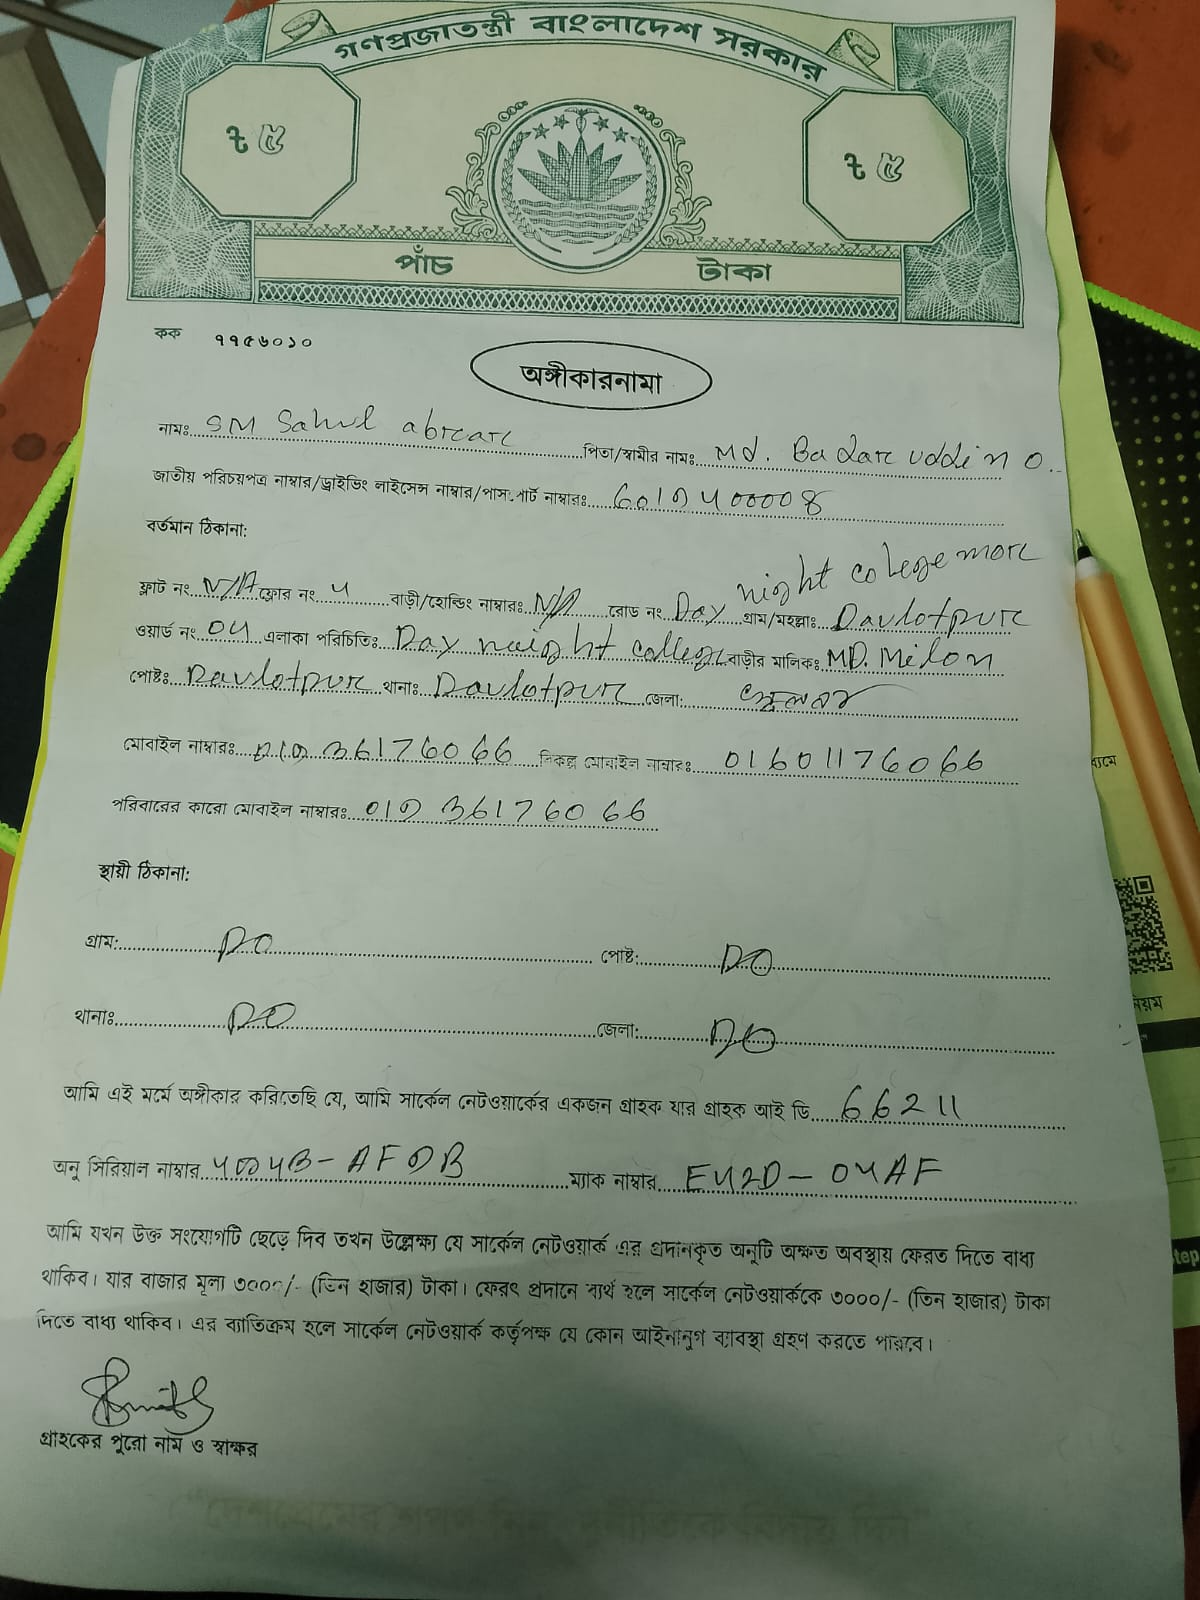 গণপ্রজাতন্ত্রী বাংলাদেশ সরকার
৳ ৫ ৳ ৫
পাঁচ টাকা
কক ৭৭৫৬০১০
অঙ্গীকারনামা
নামঃ SM Sahul abrar পিতা/স্বামীর নামঃ Md. Badar uddin
জাতীয় পরিচয়পত্র নাম্বার/ড্রাইভিং লাইসেন্স নাম্বার/পাসপোর্ট নাম্বারঃ
বর্তমান ঠিকানা:
night college more
ফ্লাট নং N/A ফ্লোর নং 4 বাড়ী/হোল্ডিং নাম্বারঃ N/A রোড নং Day গ্রাম/মহল্লাঃ Daulotpur
ওয়ার্ড নং 04 এলাকা পরিচিতিঃ Day neight college বাড়ীর মালিকঃ MD. Milon
পোষ্টঃ Daulotpur থানাঃ Daulotpur জেলা:
মোবাইল নাম্বারঃ 36176066 বিকল্প মোবাইল নাম্বারঃ 01601176066
পরিবারের কারো মোবাইল নাম্বারঃ 01936176066
স্থায়ী ঠিকানা:
গ্রাম: DO পোষ্ট: DO
থানাঃ DO জেলা: DO
আমি এই মর্মে অঙ্গীকার করিতেছি যে, আমি সার্কেল নেটওয়ার্কের একজন গ্রাহক যার গ্রাহক আই ডি 66211
অনু সিরিয়াল নাম্বার ম্যাক নাম্বার E42D-04AF
আমি যখন উক্ত সংযোগটি ছেড়ে দিব তখন উল্লেক্ষ্য যে সার্কেল নেটওয়ার্ক এর প্রদানকৃত অনুটি অক্ষত অবস্থায় ফেরত দিতে বাধ্য
থাকিব। যার বাজার মূল্য ৩০০০/- (তিন হাজার) টাকা। ফেরৎ প্রদানে ব্যর্থ হলে সার্কেল নেটওয়ার্ককে ৩০০০/- (তিন হাজার) টাকা
দিতে বাধ্য থাকিব। এর ব্যাতিক্রম হলে সার্কেল নেটওয়ার্ক কর্তৃপক্ষ যে কোন আইনানুগ ব্যাবস্থা গ্রহণ করতে পারবে।
গ্রাহকের পুরো নাম ও স্বাক্ষর